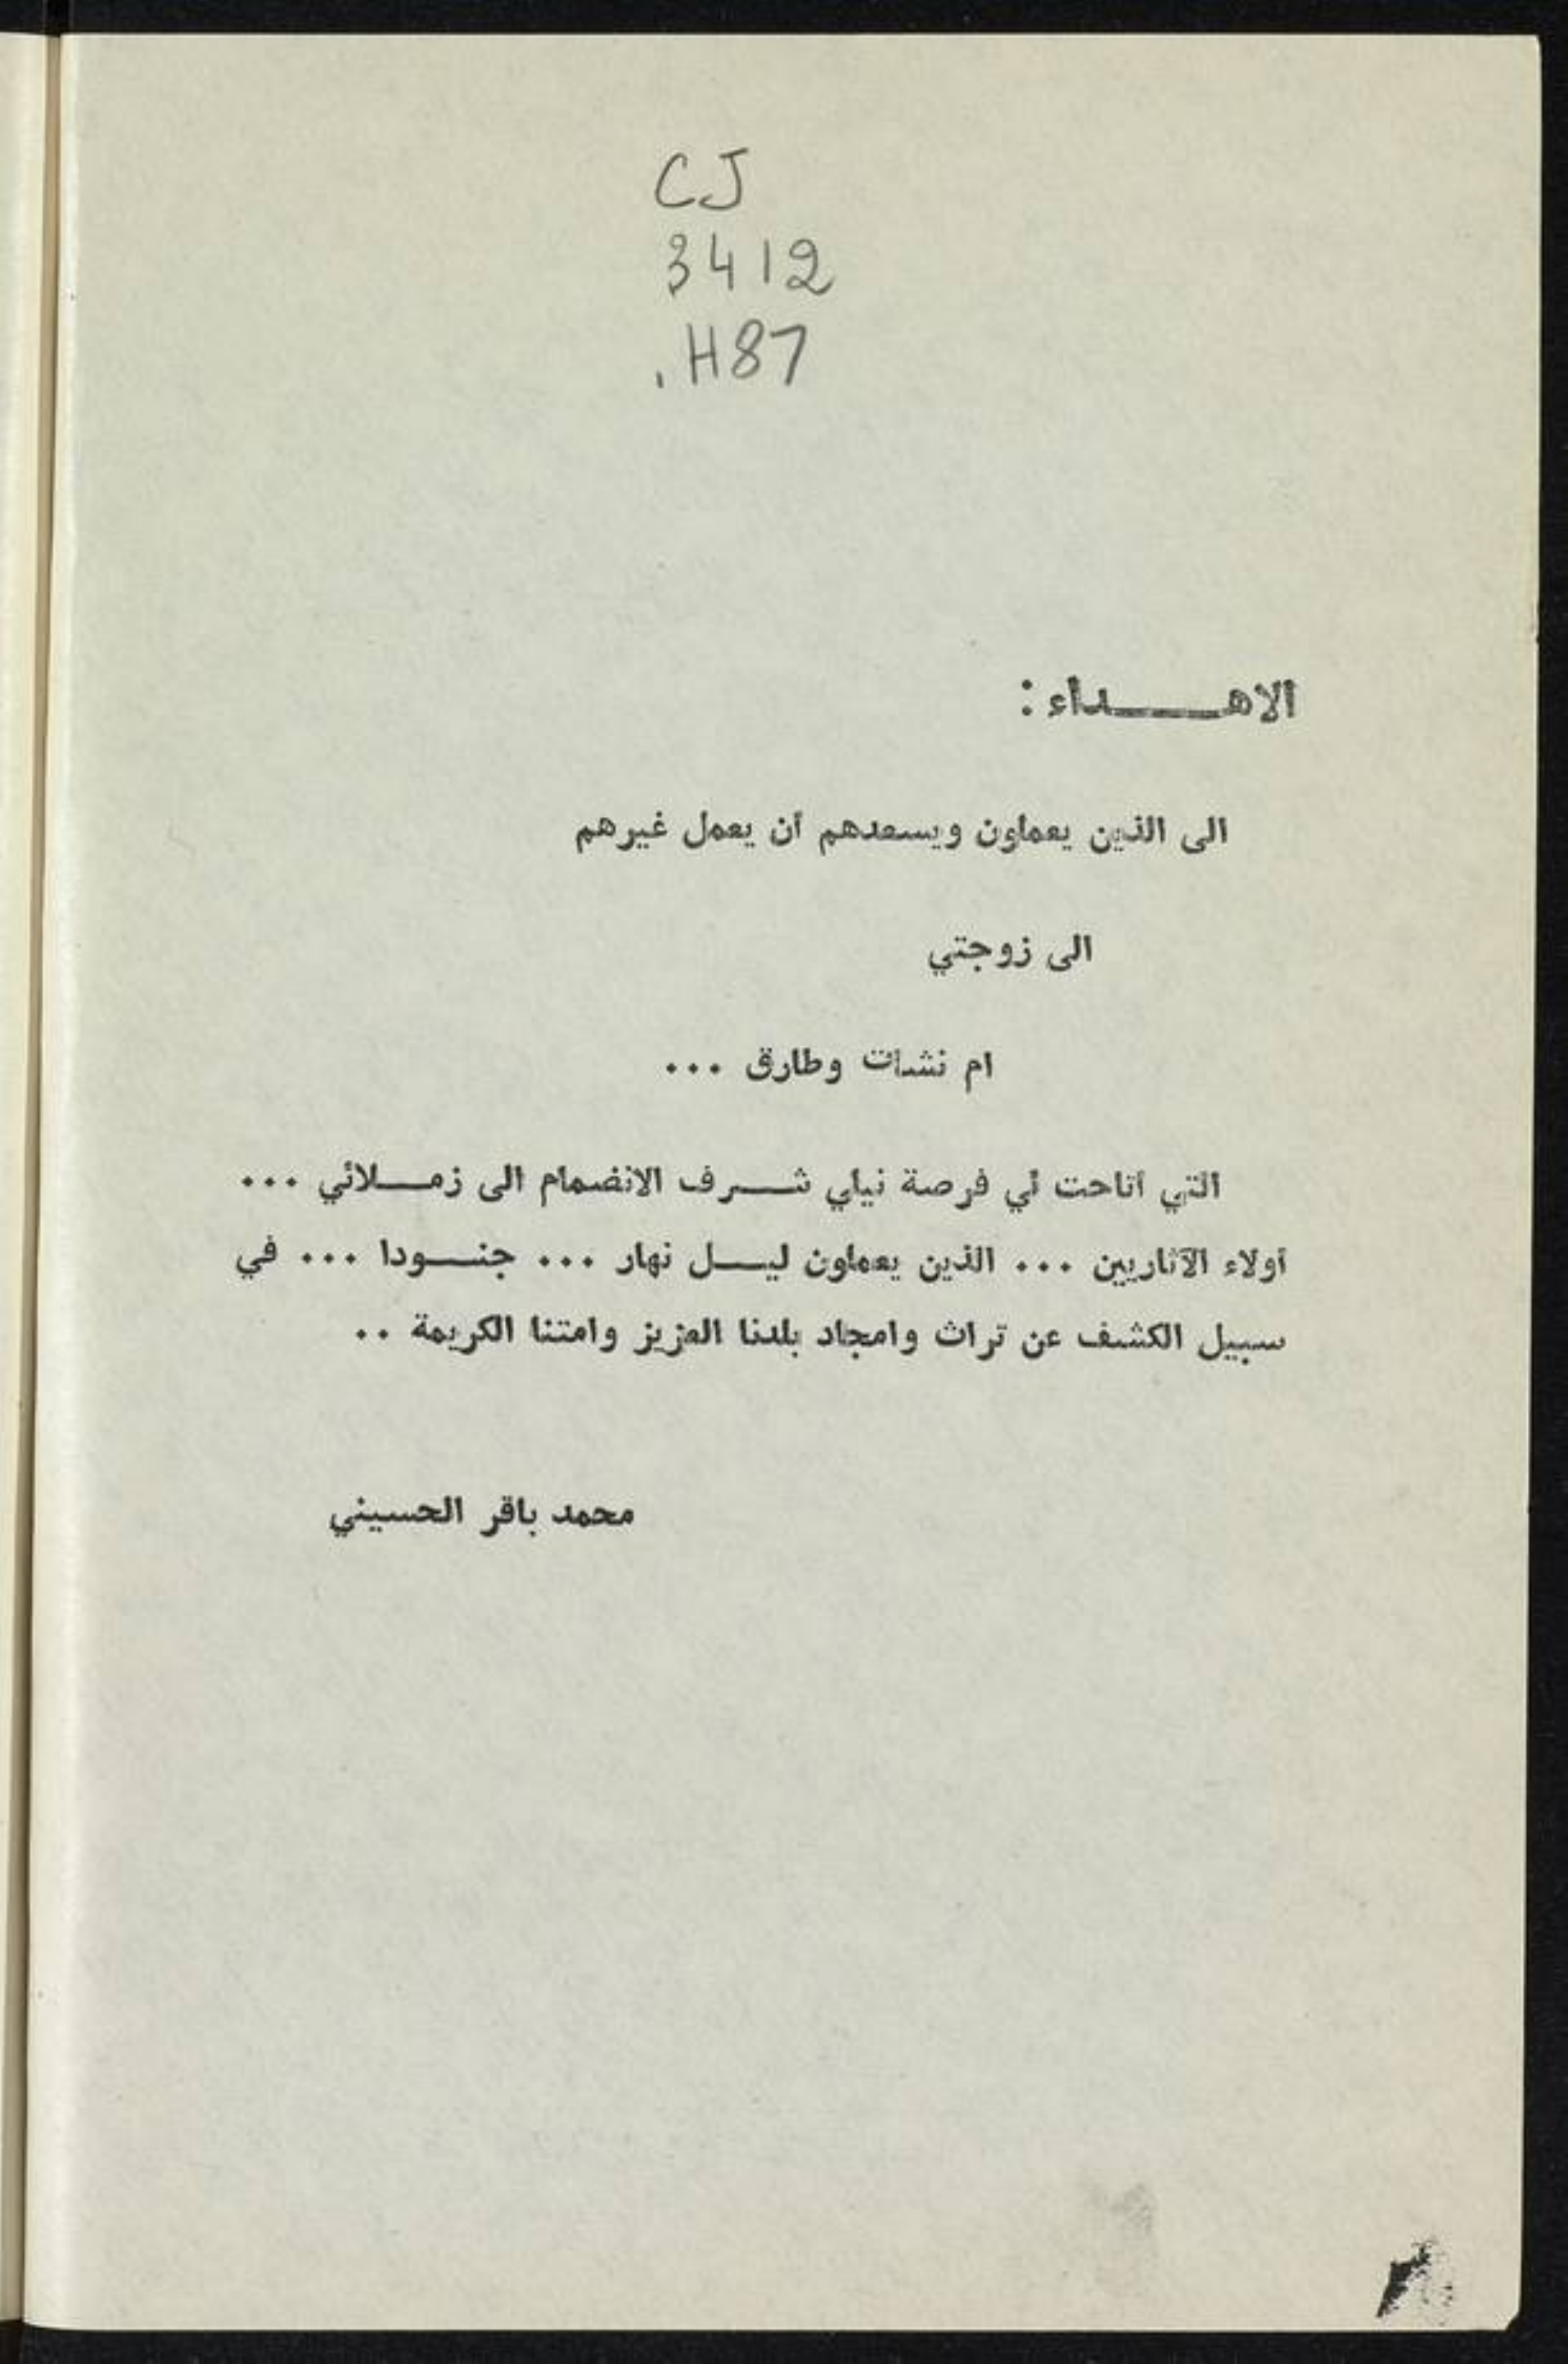 CJ
3412
.H87
الاهداء :
الى الذين يعملون ويسعدهم أن يعمل غيرهم
الى زوجتي
ام نشات وطارق ...
التي أتاحت لي فرصة نيلي شرف الانضمام الى زملائي ...
أولاء الآثاريين ... الذين يعملون ليل نهار ... جنودا ... في
سبيل الكشف عن تراث وامجاد بلدنا العزيز وامتنا الكريمة ..
محمد باقر الحسيني